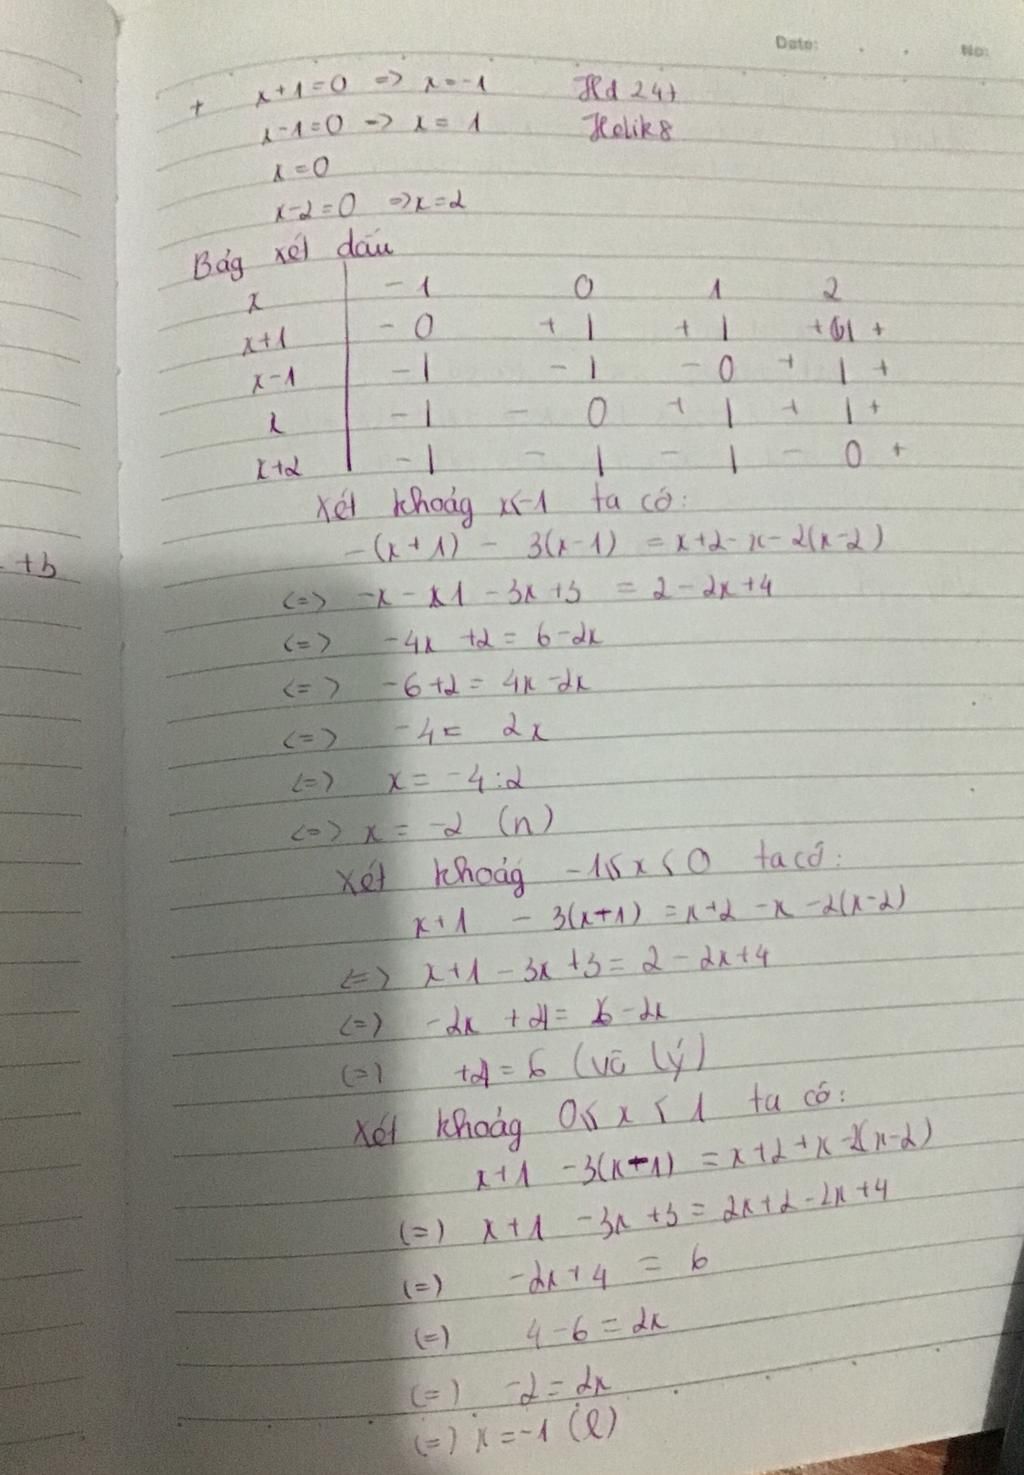 Date: . . No:
+ x+1=0 => x=-1 Hd 247
x-1=0 => x=1 Holik8
x=0
x-2=0 => x=2
Bảg xét dấu
x | -1 0 1 2
x+1 | - 0 + | + | + | +
x-1 | - | - | - 0 + | +
x | - | - 0 + | + | +
x+2 | - | - | - | - 0 +
Xét khoảg x<-1 ta có:
-(x+1) - 3(x-1) = x+2-x-2(x-2)
<=> -x - 1 - 3x + 3 = 2 - 2x + 4
<=> -4x +2 = 6-2x
<=> -6+2 = 4x-2x
<=> -4 = 2x
<=> x = -4:2
<=> x = -2 (n)
Xét khoảg -1≤x<0 ta có:
x+1 - 3(x+1) = x+2 -x -2(x-2)
<=> x+1 - 3x +3 = 2 - 2x+4
<=> -2x +4 = 6-2x
<=> +4 = 6 (vô lý)
Xét khoảg 0≤ x < 1 ta có:
x+1 -3(x-1) = x+2+x-2(x-2)
<=> x+1 -3x +3 = 2x+2-2x+4
<=> -2x+4 = 6
<=> 4-6 = 2x
<=> -2 = 2x
<=> x = -1 (l)
+b